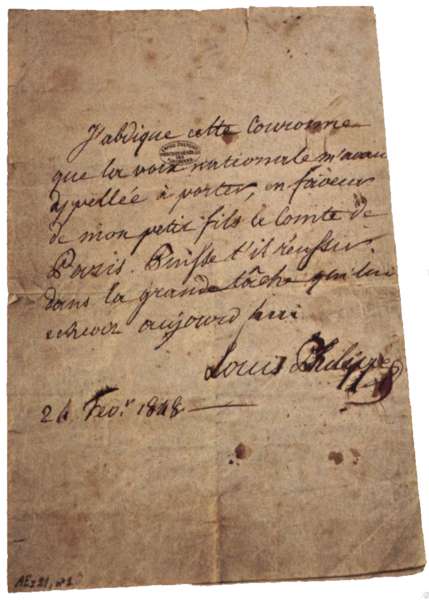 J'abdique cette Couronne
que la voix nationale m'avait
appellée à porter, en faveur
de mon petit fils le Comte de
Paris. Puisse t'il réussir
dans la grande tâche qui lui
echeoit aujourd'hui
Louis Philippe
24 Fevr. 1848
AE I 21, n° 2